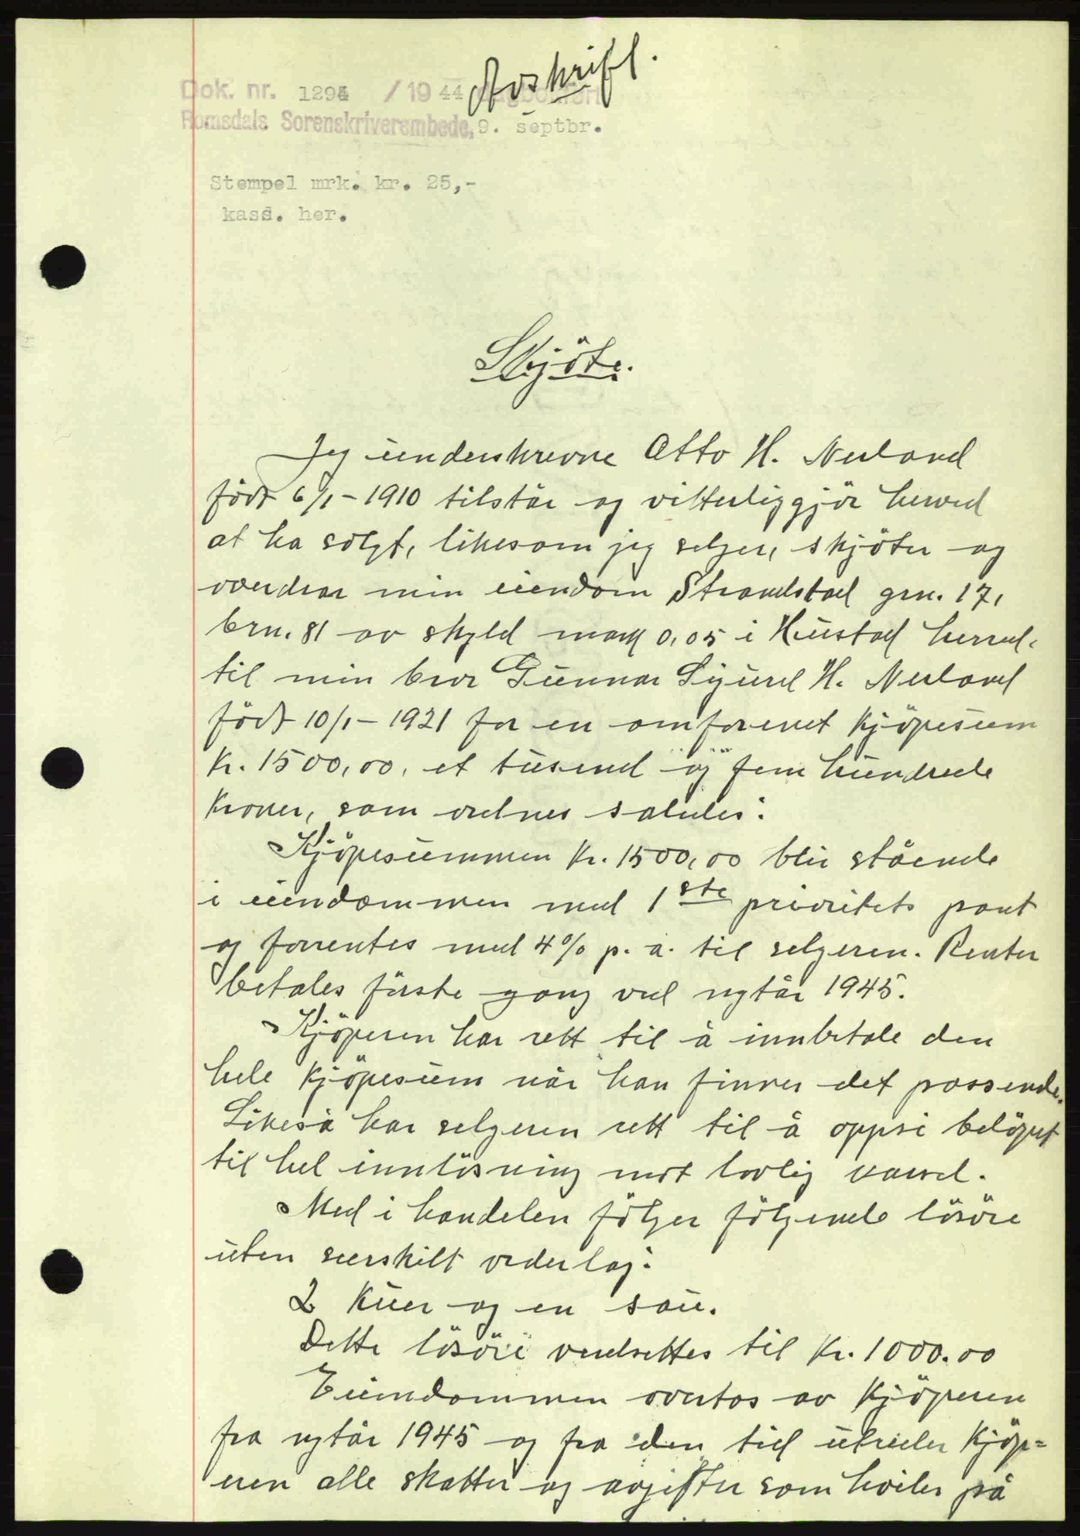 Avskrift.
Dok. nr. 1294 / 19 44 dagbokført
Romsdals Sorenskriverembede, 9. septbr.
Stempel mrk. kr. 25,-
kass. her.
Skjöte.
Jeg underskrevne Otto H. Nerland
född 6/1-1910 tilstår og vitterliggjör herved
at ha solgt, likesom jeg selger, skjöter og
overdrar min eiendom Strandstad grn. 17,
brn. 81 av skyld mark 0,05 i Hustad herred,
til min bror Gunnar Sigurd H. Nerland
född 10/1-1921 for en omforenet kjöpesum
kr. 1500,00, et tusend og fem hundrede
kroner, som ordnes saledes:
Kjöpesummen kr. 1500,00 blir stående
i eiendommen med 1ste prioritets pant
og forrentes med 4% p. a. til selgeren. Renter
betales förste gang ved nytår 1945.
Kjöperen har rett til å innbetale den
hele kjöpesum når han finner det passende.
Likeså har selgeren rett til å oppsi belöpet
til hel innlösning mot lovlig varsel.
Med i handelen fölger fölgende lösöre
uten særskilt vederlag:
2 kuer og en sau.
Dette lösöre verdsettes til kr. 1000.00
Eiendommen overtas av kjöperen
fra nytår 1945 og fra den tid utreder kjöp=
eren alle skatter og avgifter som hviler på